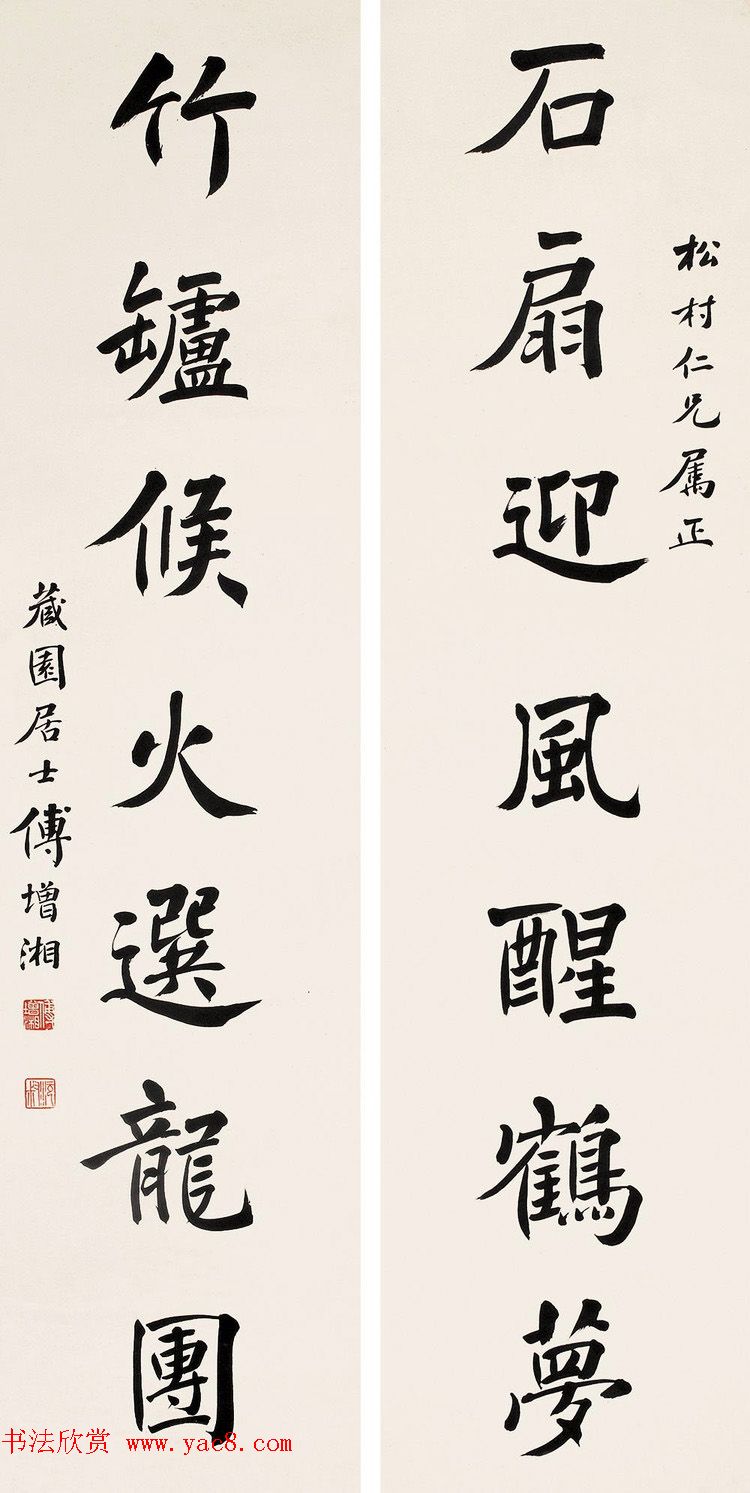 松村仁兄属正
石扇迎風醒鶴夢
竹罏候火選龍團
藏園居士傅增湘
傅增湘
书法欣赏 www.yac8.com